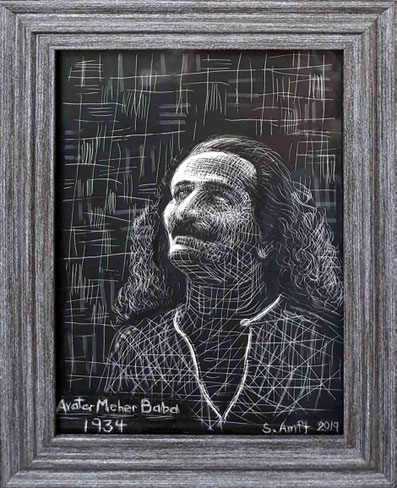 Avatar Meher Baba
1934
S. Amft 2019